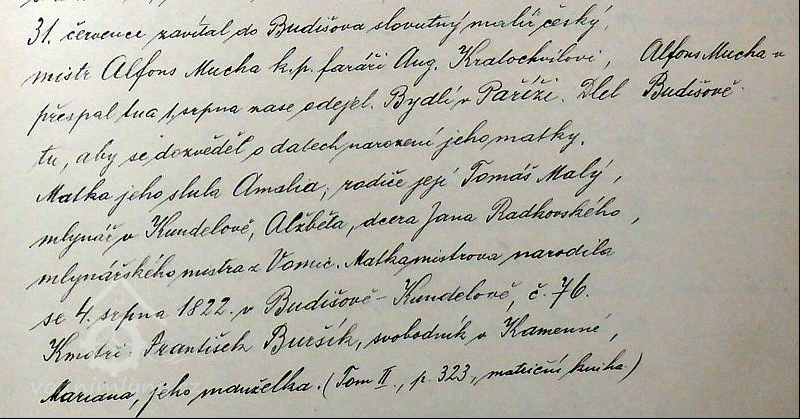 31. července zavítal do Budišova slovutný malíř český,
mistr Alfons Mucha k.p. faráři Aug. Kratochvilovi,
Alfons Mucha v
přespal tu a 1. srpna zase odejel. Bydlí v Paříži. Dlel
Budišově.
tu, aby se dozvěděl o datech narození jeho matky.
Matka jeho slula Amalia; rodiče její Tomáš Malý,
mlynář v Kundelově, Alžběta, dcera Jana Radkovského,
mlynářského mistra z Vamic. Matka mistrova narodila
se 4. srpna 1822. v Budišově-Kundelově, č. 76.
Kmotři: František Buršík, svobodník v Kamenné,
Mariana, jeho manželka. (Tom II., p. 323., matriční kniha.)